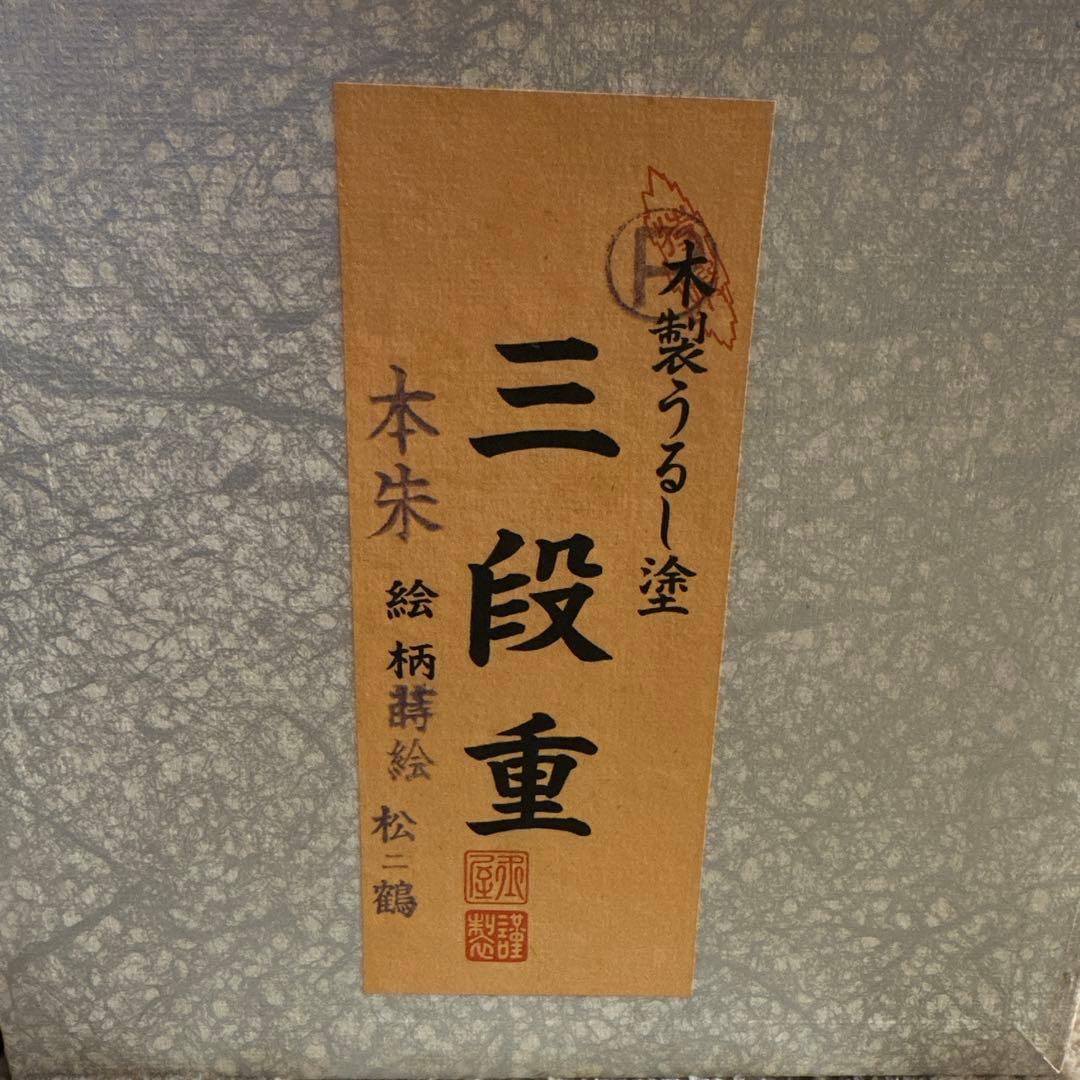 木製うるし塗
三段重
本朱
絵柄蒔絵
松ニ鶴
謹製